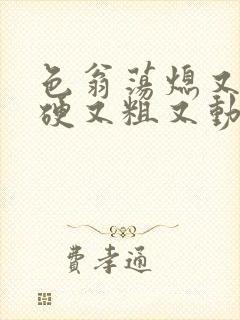 色翁荡熄又
硬又粗又動
費孝通